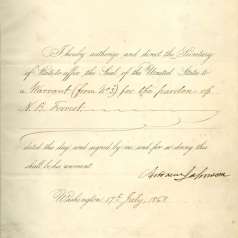 I hereby authorize and direct the Secretary
of State to affix the Seal of the United States to
a Warrant for the pardon of
N. B. Forrest
dated this day and signed by me and for so doing this
shall be his warrant
Andrew Johnson
Washington 17th July, 1868.